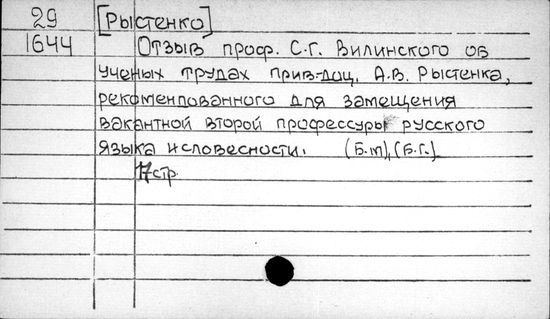 29 [Рыстенко]
1644 Отзыв проф. С.Г. Вилинского об
ученых трудах прив-доц. А.В. Рыстенка,
рекомендованного для замещения
вакантной второй профессуры русского
языка и словесности. (Б.м),(Б.г.)
17стр